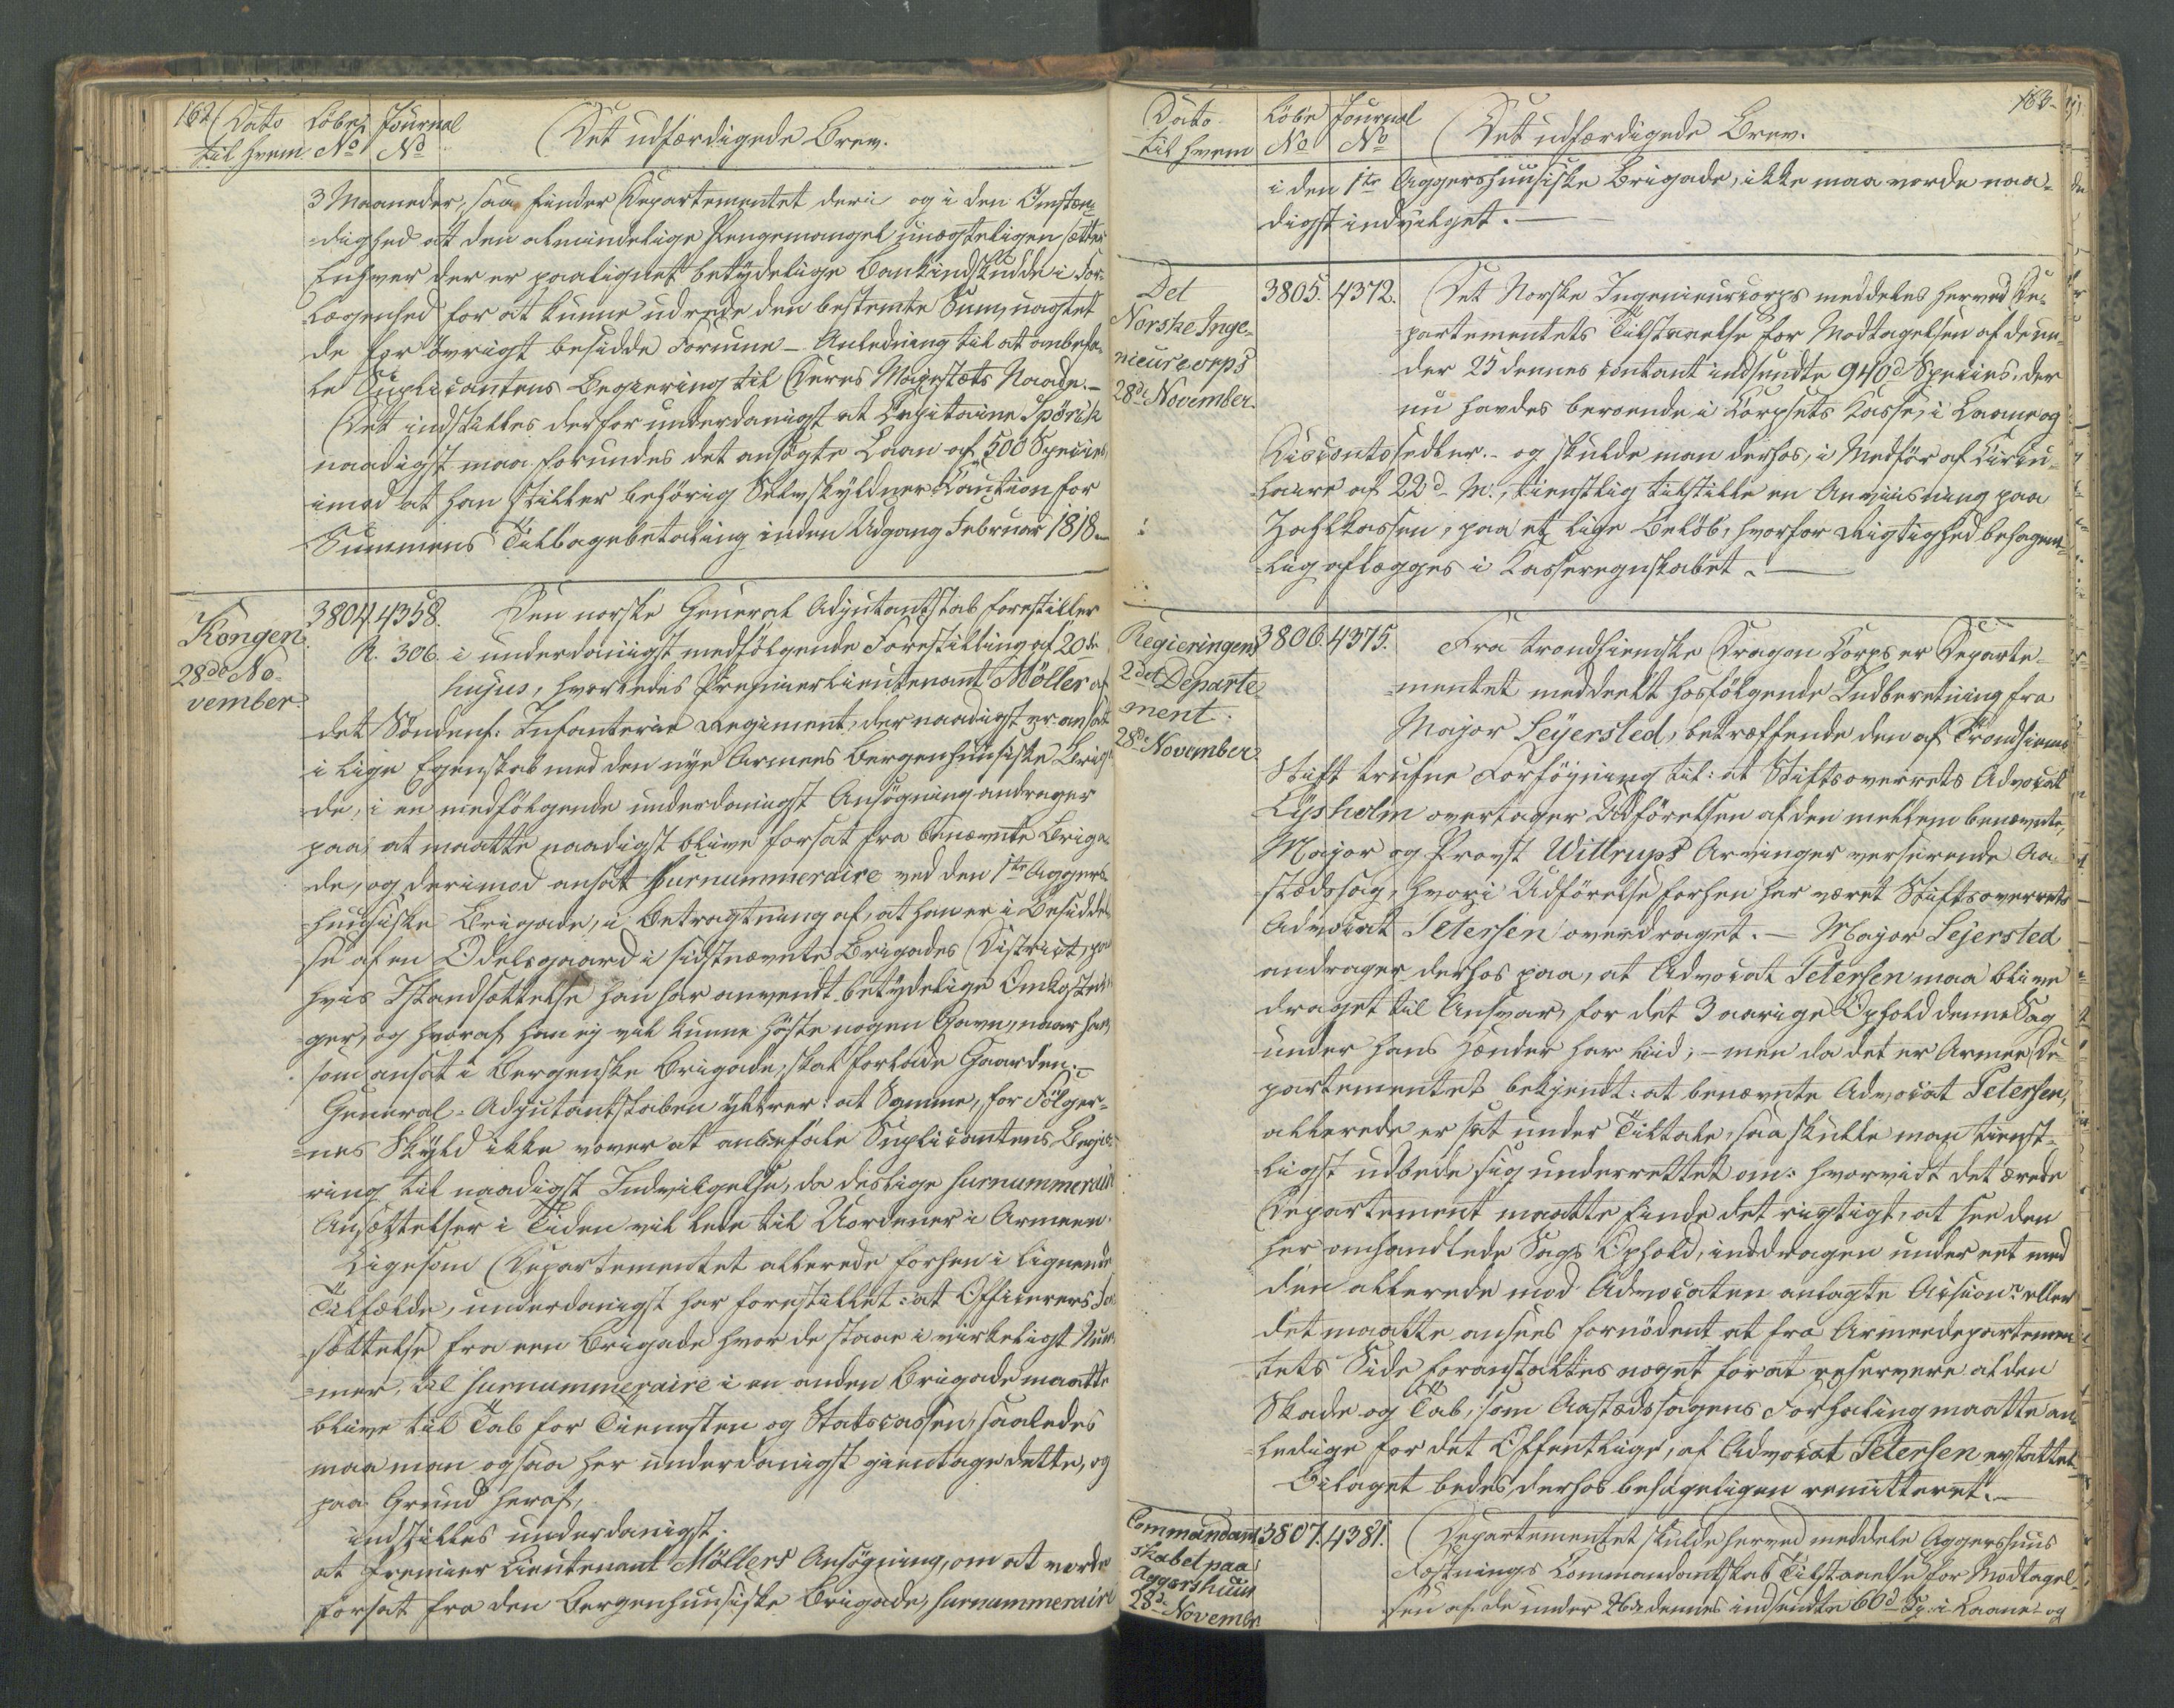 162
Dato Löbe Journal
til hvem No No Det udfærdigede Brev.
3 Maaneder, saa finder Departementet deri og i den Omstæn-
-dighed at den almindelige Pengemangel unægteligen sætter
Enhver der er paalignet betydelige Bankindskudde i For-
-lægenhed for at kunne udrede den bestemte Sum, uagtet
de for övrigt besidde Formue – Anledning til at anbefa-
le Suplicantens Begiering til Deres Majestæts Naade. –
Det indstilles derfor underdanigst at Capitaine Spörck
naadigst maa forundes det ansøgte Laan af 500 Species,
imod at han stiller behörig Selvskyldner Caution for
Summens Tilbagebetaling inden Udgang Februar 1818. –
Kongen
28de No-
vember.
3804. 4358. Den norske General Adjutantstab forestiller
R. 306. i underdanigst medfölgende Forestilling af 20de
hujus, hvorledes Premier Lieutenant Möller af
det Söndenf: Infanterie Regiment, der naadigst er ansat
i lige Egenskab med den nye Armees Bergenhuusiske Briga-
de, i en medfölgende underdanigst Ansögning andrager
paa, at maatte naadigst blive forsat fra benævnte Briga-
de, og derimod ansat surnummeraire ved den 1te Aggers-
huusiske Brigade, i Betragtning af, at han er i Besiddel-
se af en Odelsgaard i sidstnævnte Brigades District, paa
hvis Istandsættelse han har anvendt betydelige Omkostnin-
ger, og hvoraf han ej vil kunne höste nogen Gavn, naar han,
som ansat i Bergenske Brigade, skal forlade Gaarden. –
General-Adjutantstaben yttrer: at Samme, for Fölger-
-nes Skyld ikke vover at anbefale Suplicantens Begie-
ring til naadigst Indvilgelse, da deslige surnummeraire
Ansættelser i Tiden vil lede til Uordener i Armeen.
Ligesom Departementet allerede forhen i lignende
Tilfælde, underdanigst har forestillet: at Officierers For-
sættelse fra een Brigade hvor de staae i virkeligt Num-
-mer, til surnummeraire i en anden Brigade maatte
blive til Tab for Tienesten og Statscassen, saaledes
maa man ogsaa her underdanigst gientage dette, og
paa Grund heraf,
indstilles underdanigst:
at Premier Lieutenant Möllers Ansögning, om at vorde
forsat fra den Bergenhuusiske Brigade, surnummeraire
163.
Dato Löbe Journal
til hvem No No Det udfærdigede Brev.
i den 1te Aggershuusiske Brigade, ikke maa vorde naa-
digst indvilget. –
Det
Norske Inge-
nieurcorps
28de November.
3805. 4372. Det Norske Ingenieurcorps meddeles herved De-
partementets Tilstaaelse for Modtagelsen af de un-
der 25 dennes contant indsendte 940d Species, der
nu havdes beroende i Corpsets Kasse, i Laane og
Discontosedler. – og skulde man derhos, i Medför af Circu-
-laire af 22d M:, tienstlig tilstille en Anviisning paa
Zahlkassen, paa et lige Belöb, hvorfor Rigtighed behagent-
-lig aflægges i Kasseregnskabet. –
Regieringens
2det Departe
ment.
28de November.
3806. 4375. Fra trondhiemske Dragon Corps er Departe-
-mentet meddeelt hosfölgende Indberetning fra
Major Seyersted, betræffende den af Trondhiems
Stift trufne Forföyning til: at Stiftsoverrets Advocat
Lysholm overtager Udförelsen af den mellem benævnte
Major og Provst Wittrups Arvinger verserende Aa-
stædssag, hvori Udförelse forhen har været Stiftsoverrets
Advocat Petersen overdraget. – Major Sejersted
andrager derhos paa, at Advocat Petersen maa blive
draget til Ansvar, for det 3 aarige Ophold denne Sag
under hans Hænder har liid; – men da det er Armee De-
partementet bekjendt: at benævnte Advocat Petersen,
allerede er sat under Tiltale, saa skulle man tienst-
ligst udbede sig underrettet om: hvorvidt det ærede
Departement maatte finde det rigtigt, at see den
her omhandlede Sags Ophold, inddragen under eet med
den allerede mod Advocaten anlagte Action, eller
det maatte ansees fornödent at fra Armeedepartemen
tets Side foranstaltes noget for at reservere al den
Skade og Tab, som Aastædssagens Forhaling maatte an-
-ledige for det Offentlige, af Advocat Petersen erstattet.
Bilaget bedes derhos behageligen remitteret. –
Commandant
skabet paa
Aggershuus
28de Novembr.
3807. 4381. Departementet skulde herved meddele Aggershuus
Festnings Commandantskab Tilstaaelse for Modtagel-
sen af de under 26de dennes indsendte 60d Sp: i Laane- og